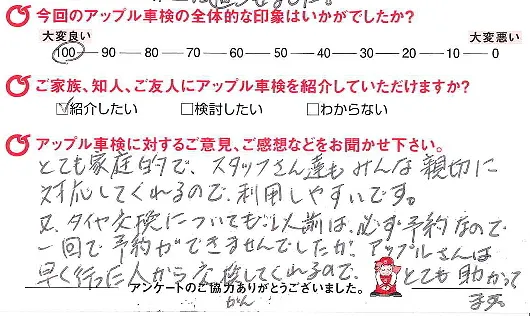 今回のアップル車検の全体的な印象はいかがでしたか?
大変良い 大変悪い
100 90 80 70 60 50 40 30 20 10 0
ご家族、知人、ご友人にアップル車検を紹介していただけますか?
☑紹介したい □検討したい □わからない
アップル車検に対するご意見、ご感想などをお聞かせ下さい。
とても家庭的で、スタッフさん達もみんな親切に
対応してくれるので、利用しやすいです。
又、タイヤ交換についても、以前は、必ず予約なので
一回で予約ができませんでしたが、アップルさんは
早く行った人から交換してくれるので、とても助かって
かん
ます。
アンケートのご協力ありがとうございました。